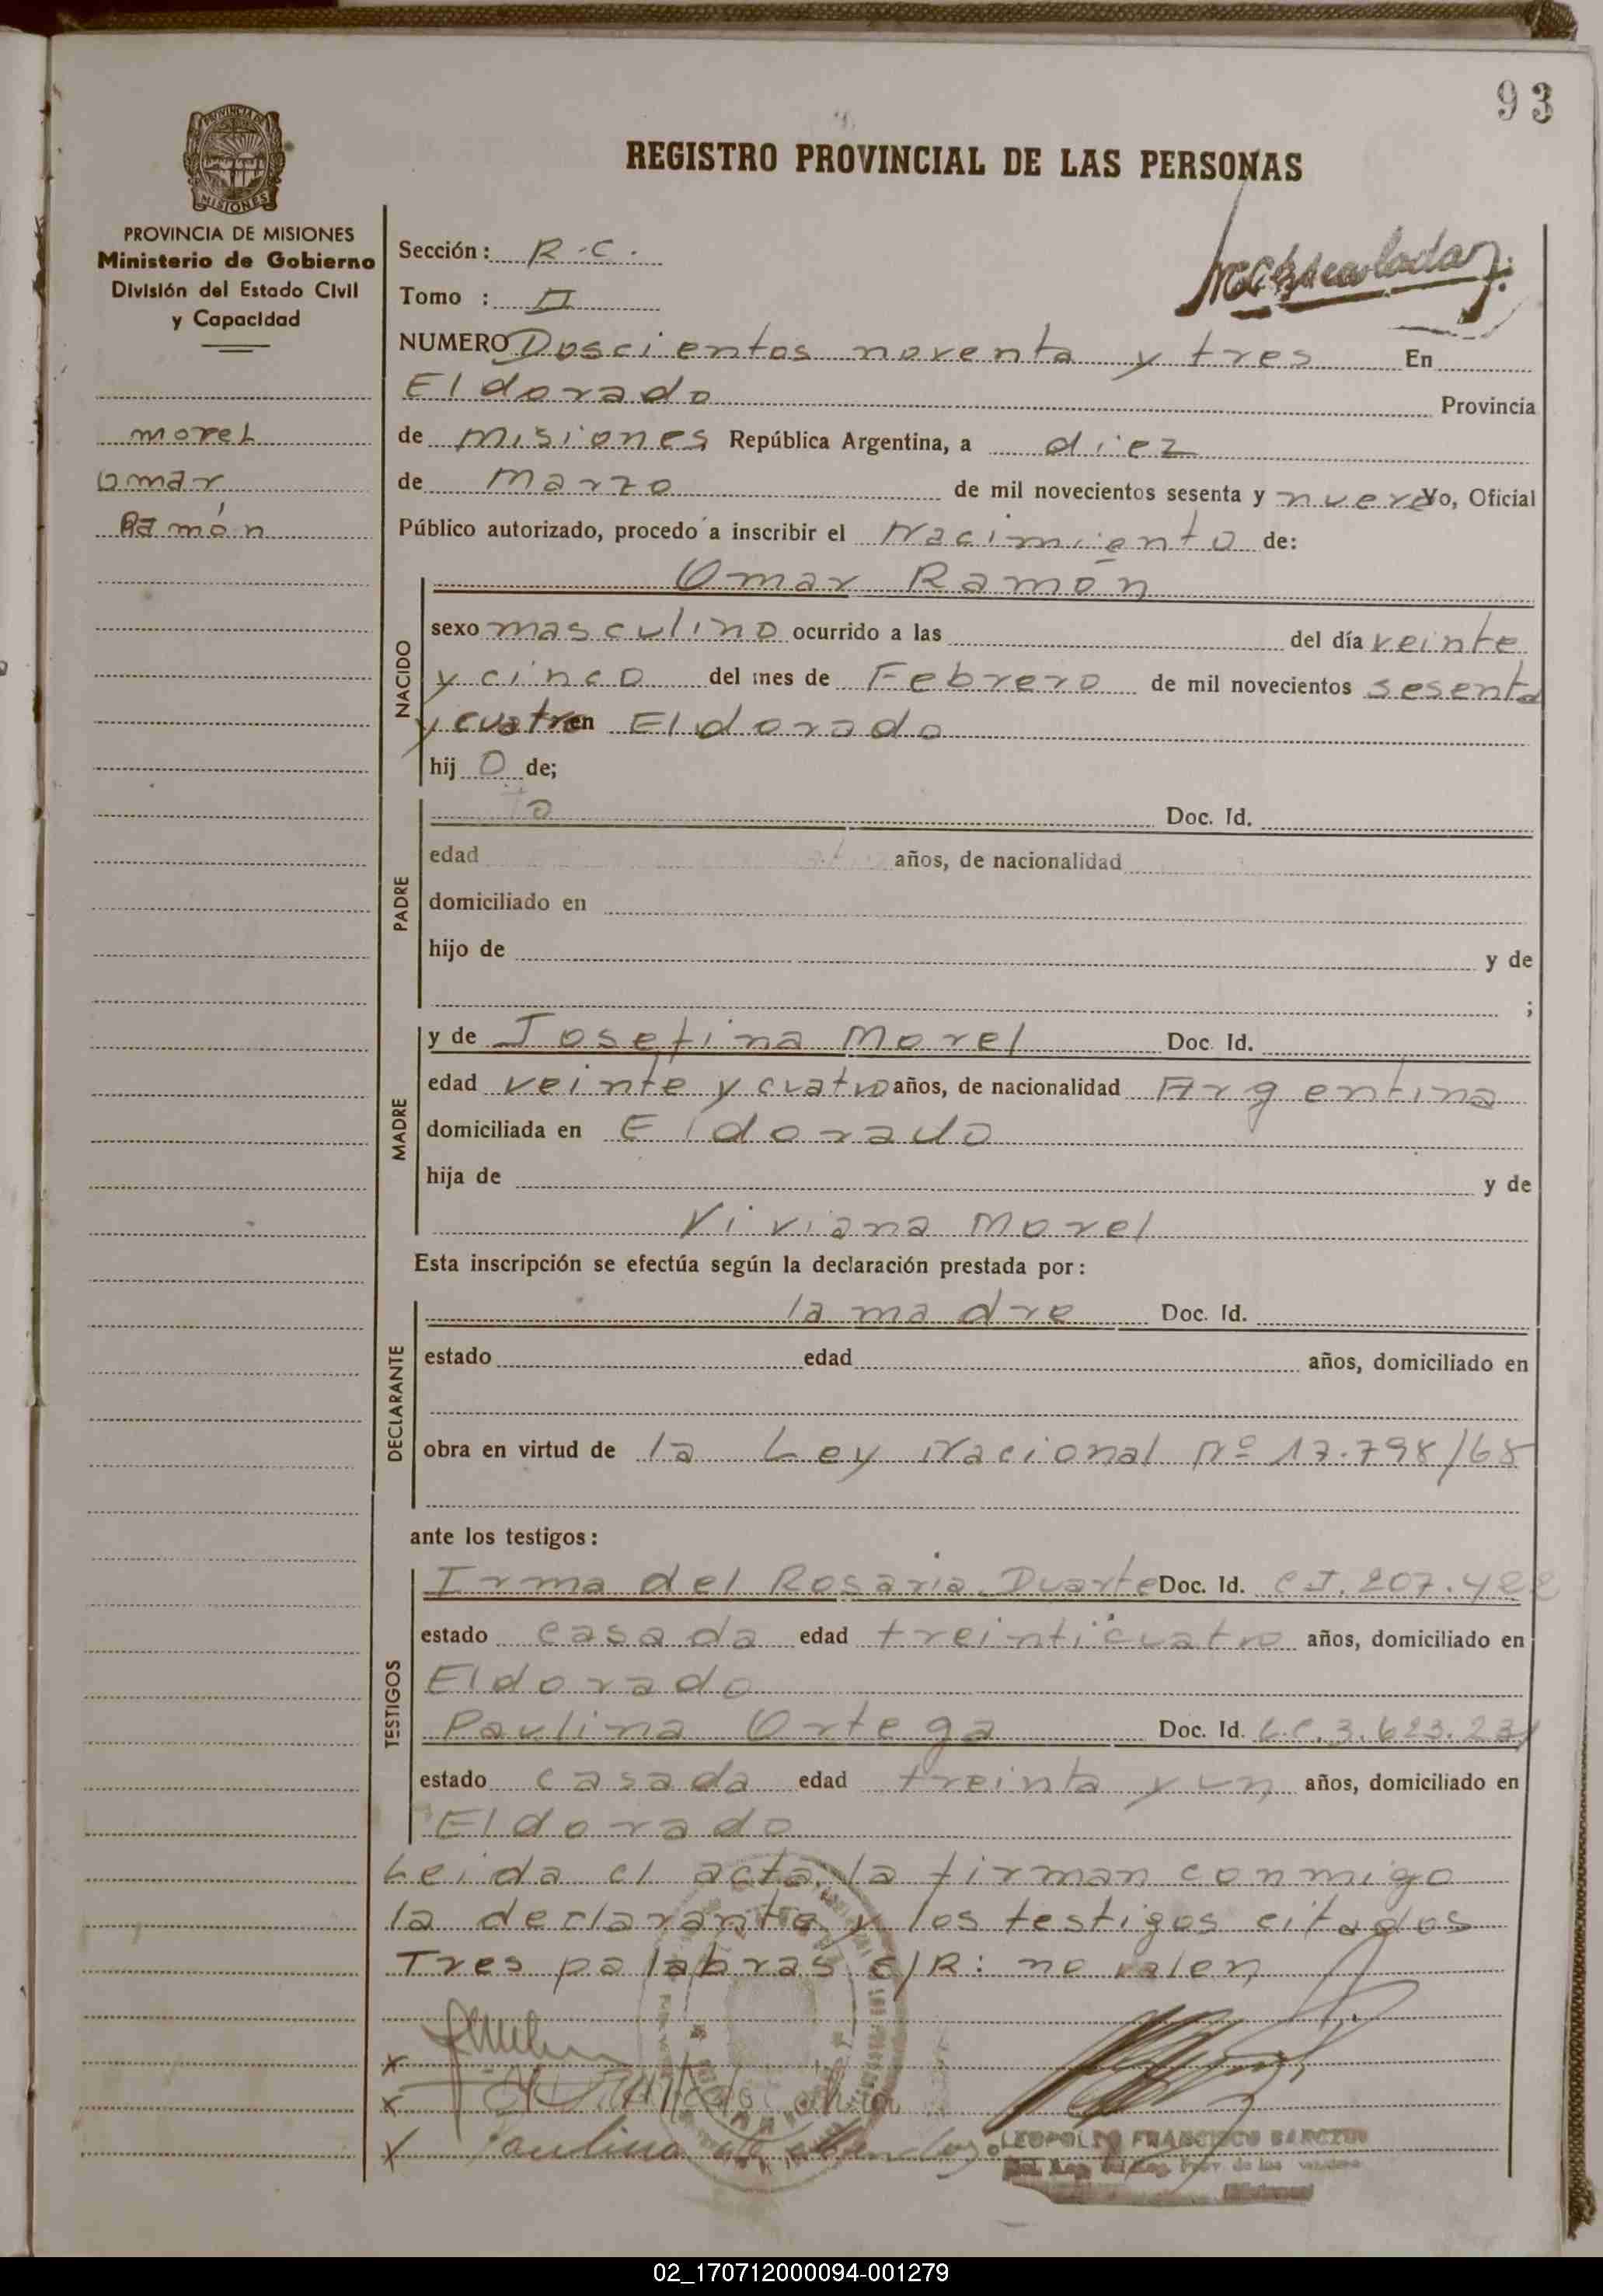 93
REGISTRO PROVINCIAL DE LAS PERSONAS
PROVINCIA DE MISIONES
Ministerio de Gobierno
División del Estado Civil
y Capacidad
morel
Omar
Ramón
Sección: R.C.
Tomo : II
NUMERO Doscientos noventa y tres En
Eldorado Provincia
de Misiones República Argentina, a diez
de Marzo de mil novecientos sesenta y nueve Yo, Oficial
Público autorizado, procedo a inscribir el Nacimiento de:
NACIDO
Omar Ramón
sexo masculino ocurrido a las del día veinte
y cinco del mes de Febrero de mil novecientos sesenta
y cuatro en Eldorado
hij o de;
PADRE
Doc. Id.
edad años, de nacionalidad
domiciliado en
hijo de y de
;
MADRE
y de Josefina Morel Doc. Id.
edad veinte y cuatro años, de nacionalidad Argentina
domiciliada en Eldorado
hija de y de
Viviana Morel
Esta inscripción se efectúa según la declaración prestada por:
DECLARANTE
la madre Doc. Id.
estado edad años, domiciliado en
obra en virtud de la Ley Nacional Nº 17.798/68
ante los testigos:
TESTIGOS
Irma del Rosario Duarte Doc. Id. C.I. 207.422
estado casada edad treinticuatro años, domiciliado en
Eldorado
Paulina Ortega Doc. Id. L.C. 3.623.231
estado casada edad treinta y un años, domiciliado en
Eldorado
Leida el acta, la firman conmigo
la declarante y los testigos citados
Tres palabras S/R: no valen
x
x
x Paulina
LEOPOLDO FRANCISCO
02_170712000094-001279